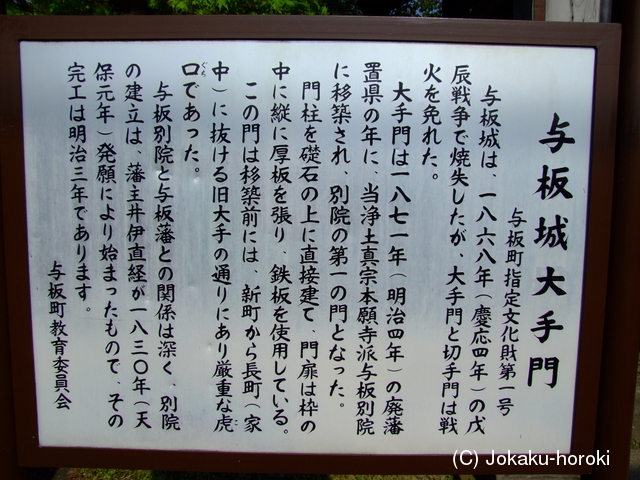 与板城大手門
与板町指定文化財第一号
与板城は、一八六八年(慶応四年)の戊
辰戦争で焼失したが、大手門と切手門は戦
火を免れた。
大手門は一八七一年(明治四年)の廃藩
置県の年に、当浄土真宗本願寺派与板別院
に移築され、別院の第一の門となった。
門柱を礎石の上に直接建て、門扉は枠の
中に縦に厚板を張り、鉄板を使用している。
この門は移築前には、新町から長町(家
中)に抜ける旧大手の通りにあり厳重な虎
口であった。
ぐち
与板別院と与板藩との関係は深く、別院
の建立は、藩主井伊直経が一八三〇年(天
保元年)発願により始まったもので、その
完工は明治三年であります。
与板町教育委員会
(C) Jokaku-horoki